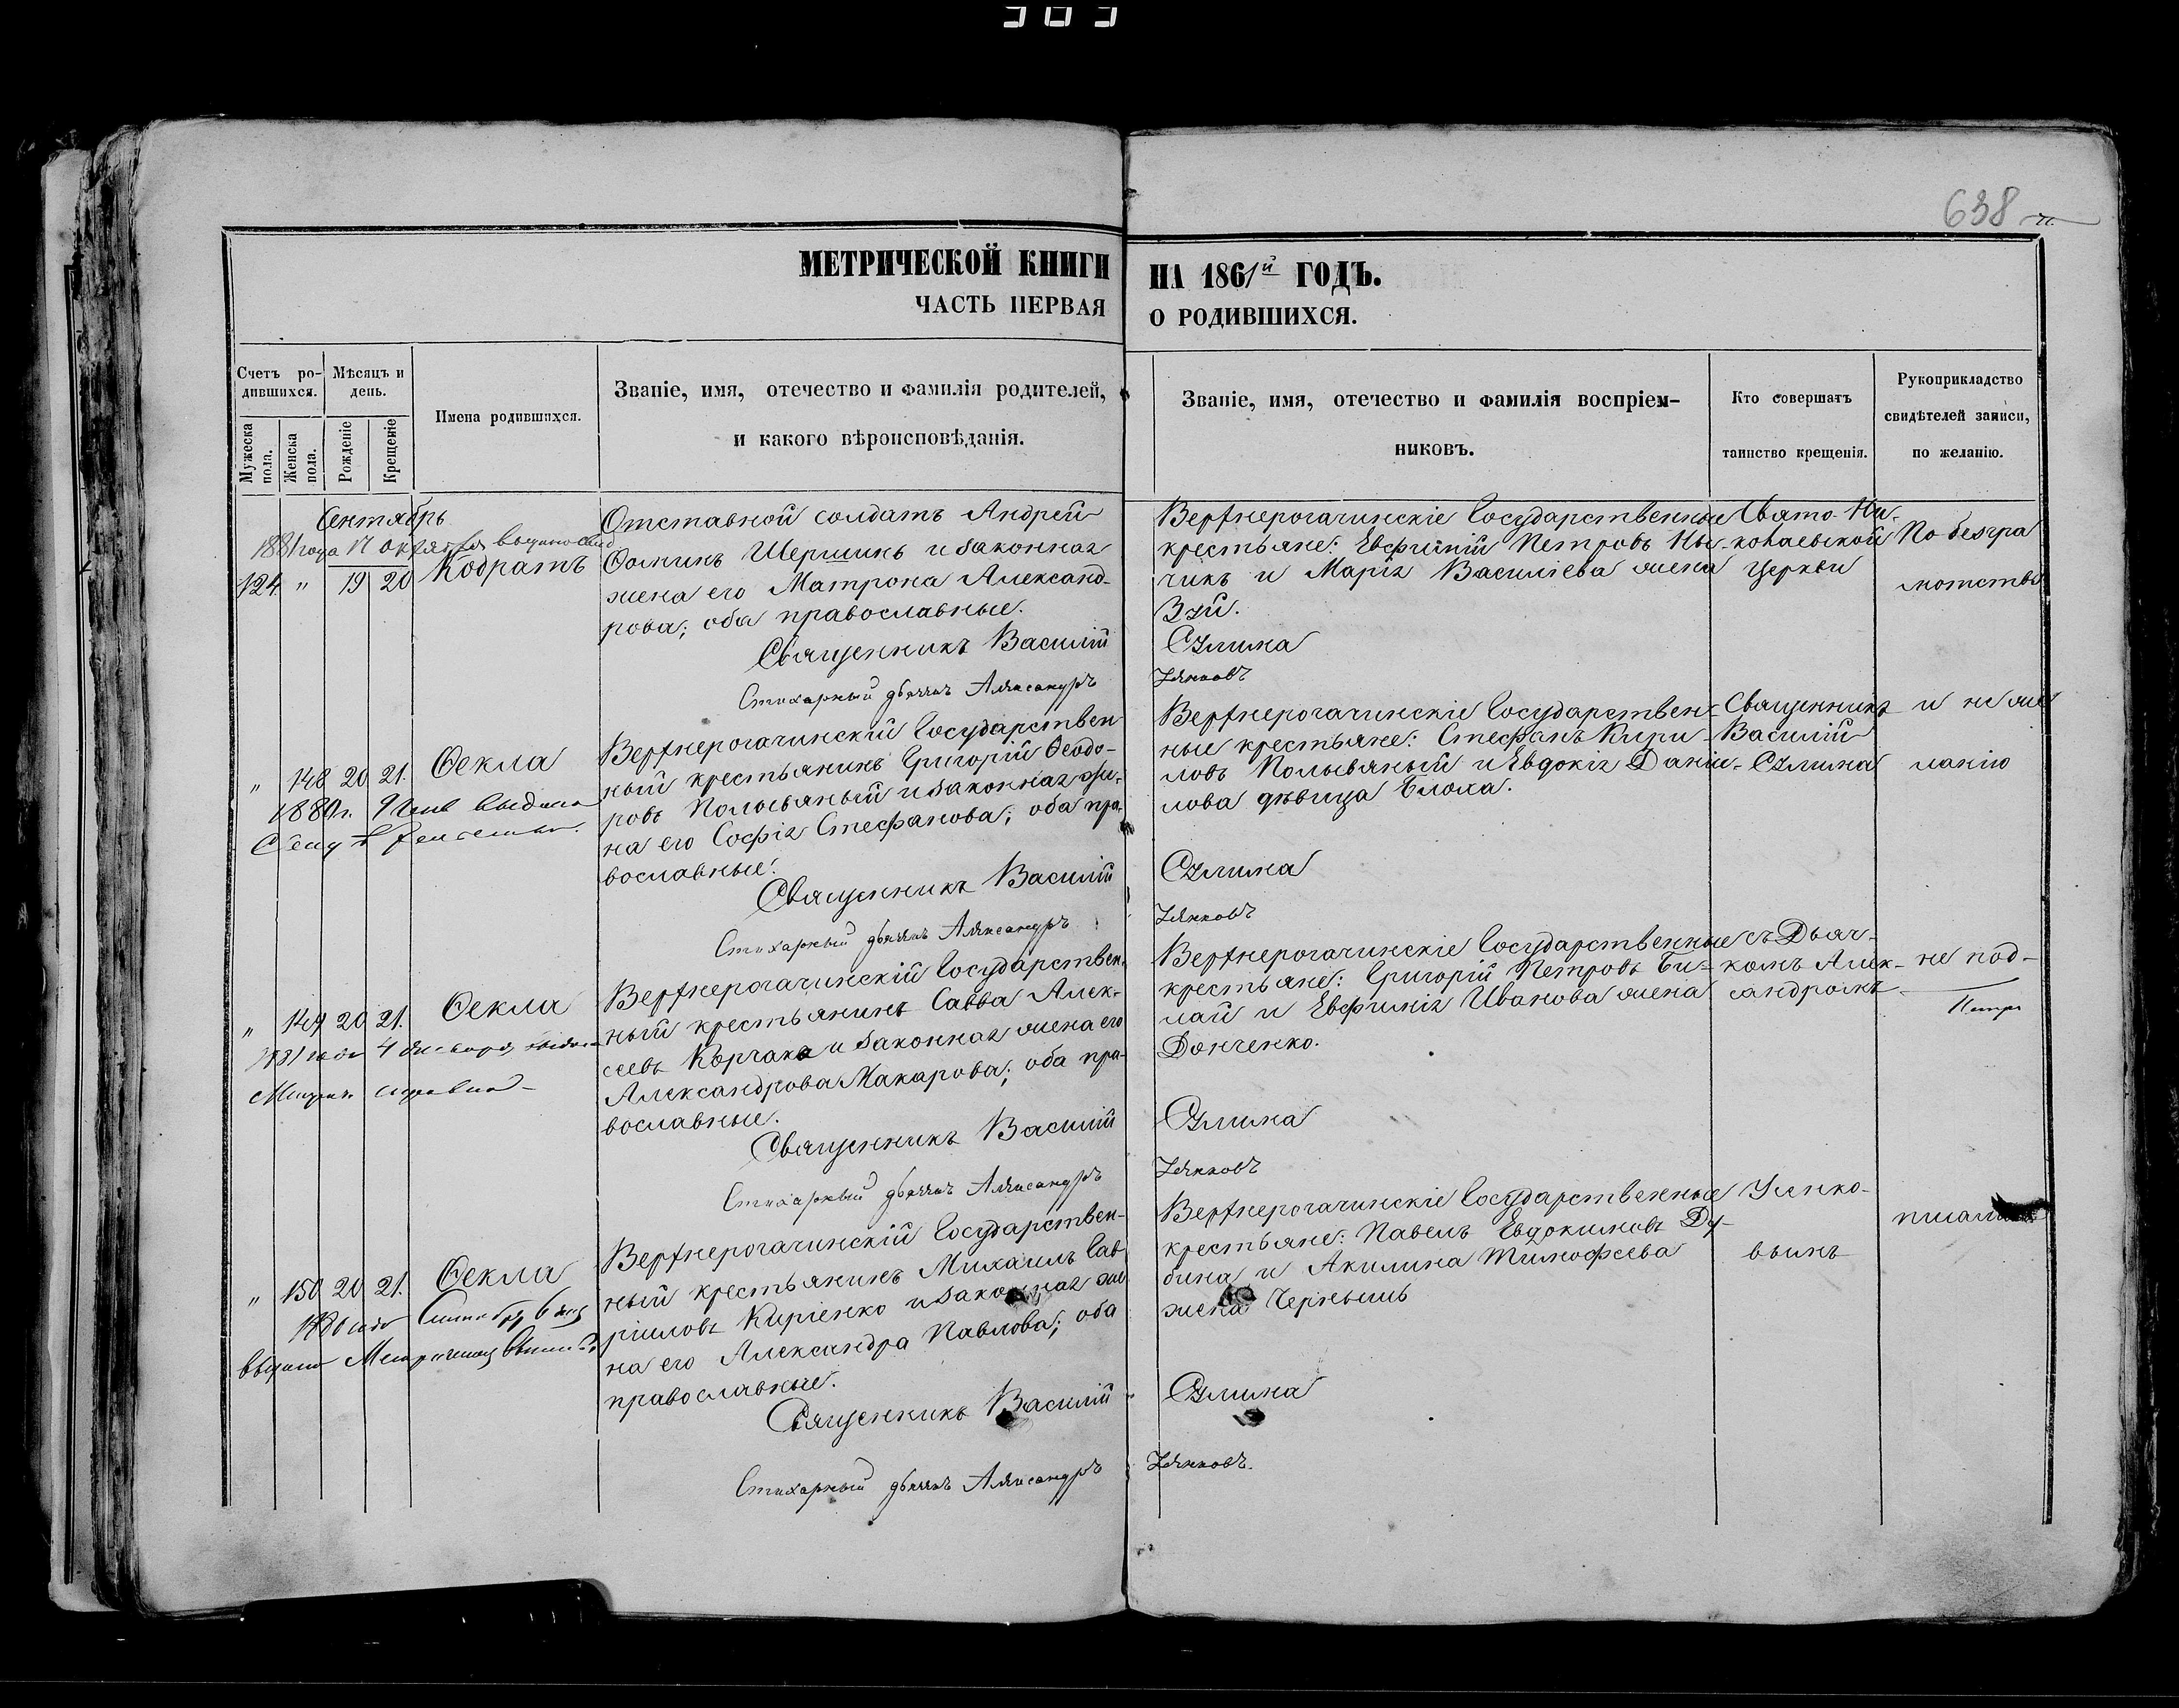 638
МЕТРИЧЕСКОЙ КНИГИ НА 1861й ГОДЪ.
ЧАСТЬ ПЕРВАЯ О РОДИВШИХСЯ.
Счетъ ро-
дившихся.
Мужеска пола.
Женска пола.
Мѣсяцъ и
день.
Рожденіе
Крещеніе
Имена родившихся.
Званіе, имя, отечество и фамилія родителей,
и какого вѣроисповѣданія.
Званіе, имя, отечество и фамилія воспріем-
никовъ.
Кто совершатъ
таинство крещенія.
Рукоприкладство
свидѣтелей записи,
по желанію.
Сентябрь
1881 года 17 октября
124 " 19 20 Кодратъ
Отставной солдатъ Андрей
Ѳоминъ Шершинь и законная
жена его Матрона Александ-
рова; оба православные.
Священникъ Василій
Стихарный дьячекъ Александръ
Верхнерогачинскіе Государственные
крестьяне: Евфимій Петровъ
чикъ и Марія Василіева жена
Сулима
Свято-Ни-
колаевской
церкви
По безгра
мотству
" 148 20 21. Ѳекла
1880 г.
Верхнерогачинскій Государствен-
ный крестьянинъ Григорій Ѳеодо-
ровъ Полывяный и законная же-
на его Софія Стефанова; оба пра-
вославные.
Священникъ Василій
Стихарный дьячекъ Александръ
Верхнерогачинскіе Государствен-
ные крестьяне: Стефанъ Кири-
ловъ Полывяный и Евдокія Дании-
лова дѣвица Блоха.
Сулима
Священникъ
Василій
Сулима
и не же
ланію
" 149 20 21. Ѳекла
1881 года 4
Верхнерогачинскій Государствен-
ный крестьянинъ Савва Алек-
сеевъ Корчака и законная жена его
Александрова Макарова; оба пра-
вославные.
Священникъ Василій
Стихарный дьячекъ Александръ
Верхнерогачинскіе Государственные
крестьяне: Григорій Петровъ Би-
лай и Евфимія Иванова жена
Донченко.
Сулима
съ Дьяч-
комъ Алек-
сандромъ
не под-
" 150 20 21. Ѳекла
Верхнерогачинскій Государствен-
ный крестьянинъ Михаилъ Гав
ріиловъ Киріенко и законная же
на его Александра Павлова; оба
православные.
Священникъ Василій
Стихарный дьячекъ Александръ
Верхнерогачинскіе Государственные
крестьяне: Павелъ Евдокимовъ Ду-
бина и Акилина Тимофеева
жена Чернышъ
Сулима